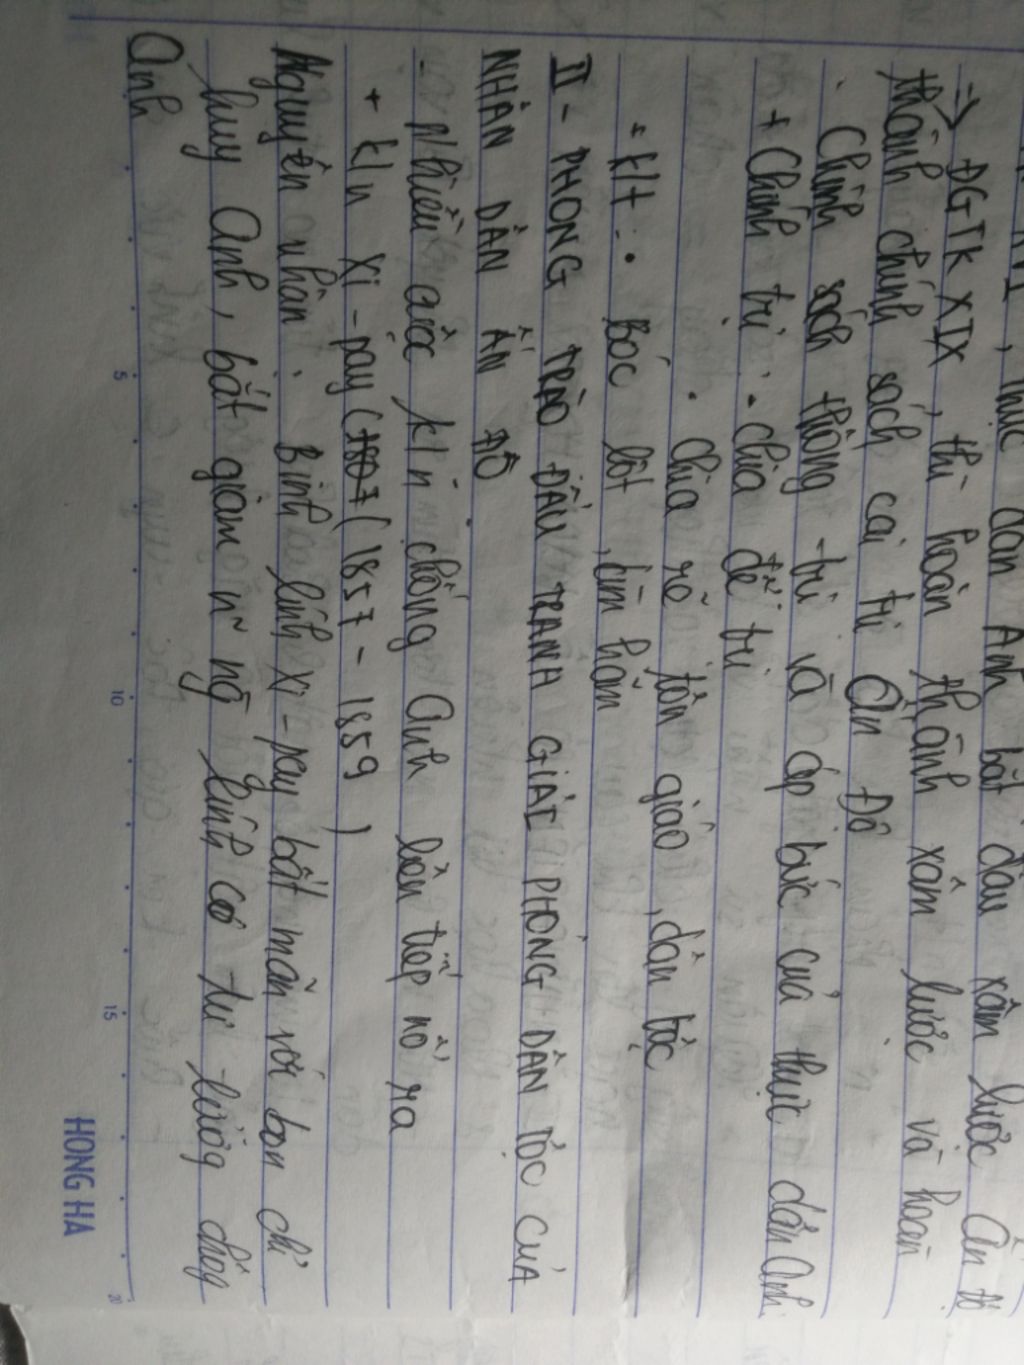 XVI, thực dân Anh bắt đầu xâm lược Ấn Độ
=> ĐGTK XIX, thì hoàn thành xâm lược và hoàn
thành chính sách cai trị Ấn Độ
. Chính sách thống trị và áp bức của thực dân Anh.
+ Chính trị : . chia để trị
. chia rẽ tôn giáo, dân tộc
+ k/t : . Bóc lột, kìm hãm
II - PHONG TRÀO ĐẤU TRANH GIẢI PHÓNG DÂN TỘC CỦA
NHÂN DÂN ẤN ĐỘ
- Nhiều cuộc k/n chống Anh liên tiếp nổ ra
+ k/n Xi-pay (1857 - 1859)
Nguyên nhân : Binh lính Xi-pay bất mãn với bọn chỉ
huy Anh, bắt giam n~ng lính có tư tưởng chống
Anh
5
10
15
20
HONG HA